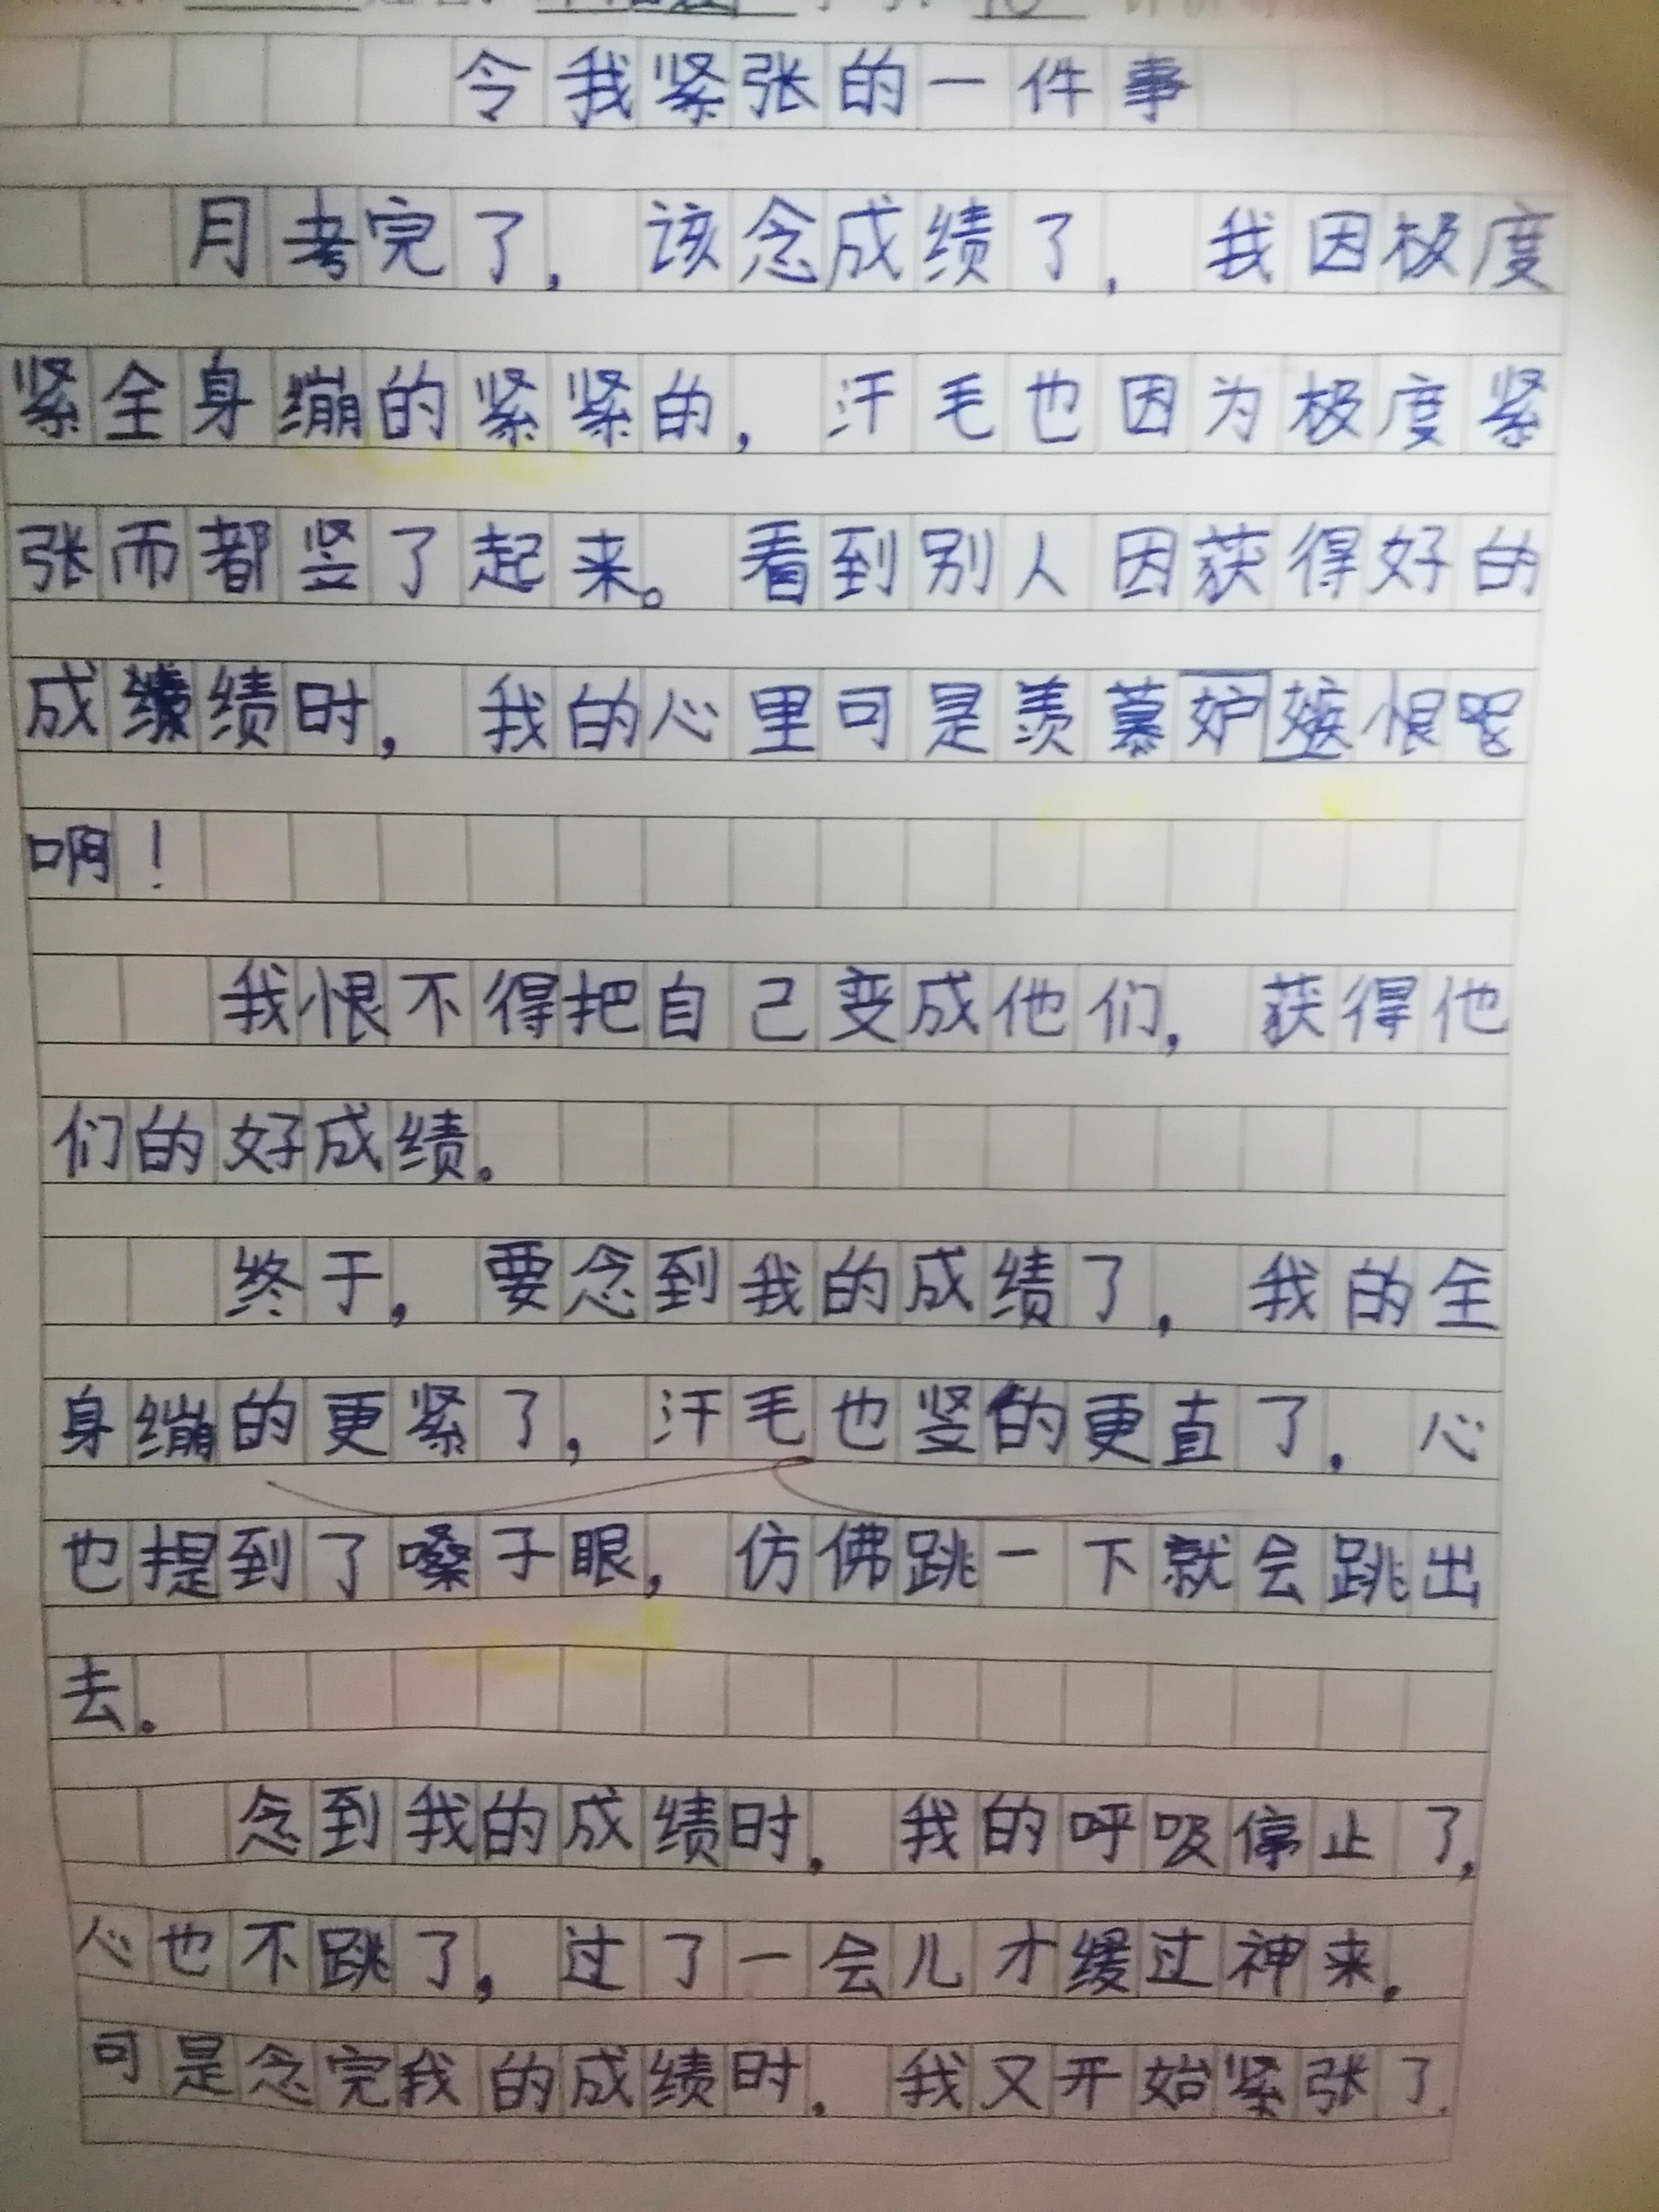 令我紧张的一件事
月考完了，该念成绩了，我因极度
紧全身绷的紧紧的，汗毛也因为极度紧
张而都竖了起来。看到别人因获得好的
成绩时，我的心里可是羡慕妒嫉恨
啊！
我恨不得把自己变成他们，获得他
们的好成绩。
终于，要念到我的成绩了，我的全
身绷的更紧了，汗毛也竖的更直了，心
也提到了嗓子眼，仿佛跳一下就会跳出
去。
念到我的成绩时，我的呼吸停止了，
心也不跳了，过了一会儿才缓过神来。
可是念完我的成绩时，我又开始紧张了，